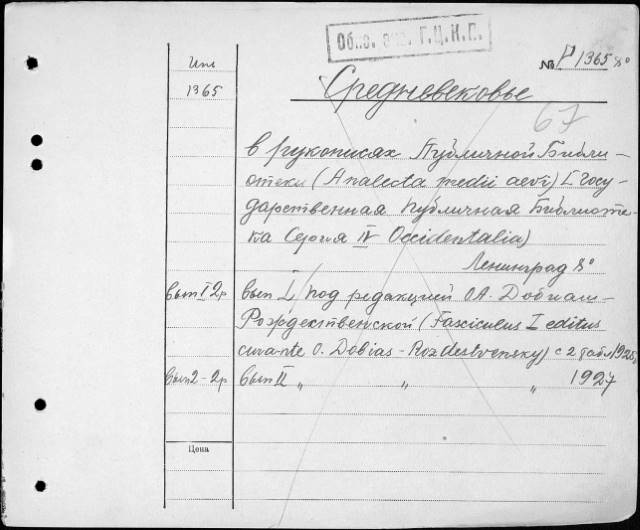 Г.Ц.К.П.
№ Р 1365 8°
Инв
1365
Средневековье
67
в рукописях Публичной Библи-
отеки (Analecta medii aevi) [Госу-
дарственная Публичная Библиоте-
ка Серия IV Occidentalia)
Ленинград 8°
вып I 2р
вып I, под редакцией О.А. Добиаш-
Рождественской (Fasciculus I editus
curante O. Dobias-Rozdestvensky) с 2 табл 1925
вып 2 - 2р
вып II „ „ „ 1927
Цена